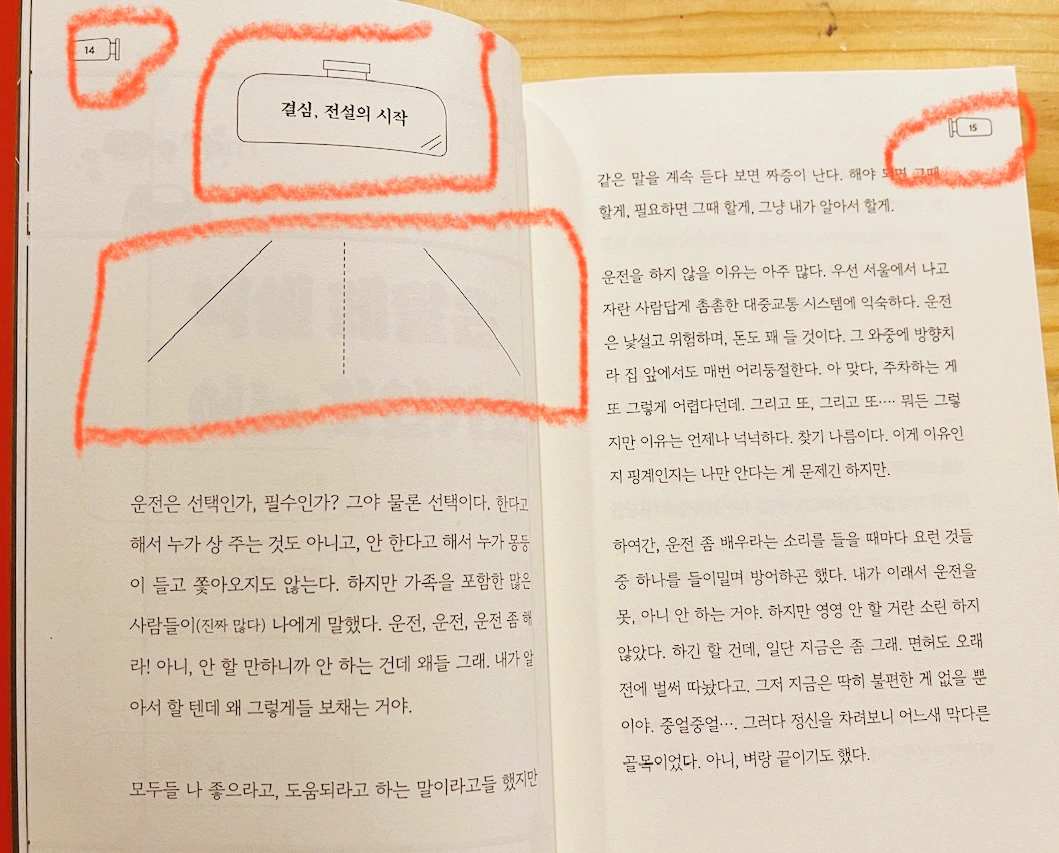 14
결심, 전설의 시작
운전은 선택인가, 필수인가? 그야 물론 선택이다. 한다고
해서 누가 상 주는 것도 아니고, 안 한다고 해서 누가 몽둥
이 들고 쫓아오지도 않는다. 하지만 가족을 포함한 많은
사람들이(진짜 많다) 나에게 말했다. 운전, 운전, 운전 좀 해
라! 아니, 안 할 만하니까 안 하는 건데 왜들 그래. 내가 알
아서 할 텐데 왜 그렇게들 보채는 거야.
모두들 나 좋으라고, 도움되라고 하는 말이라고들 했지만
15
같은 말을 계속 듣다 보면 짜증이 난다. 해야 되면 그때
할게, 필요하면 그때 할게, 그냥 내가 알아서 할게.
운전을 하지 않을 이유는 아주 많다. 우선 서울에서 나고
자란 사람답게 촘촘한 대중교통 시스템에 익숙하다. 운전
은 낯설고 위험하며, 돈도 꽤 들 것이다. 그 와중에 방향치
라 집 앞에서도 매번 어리둥절한다. 아 맞다, 주차하는 게
또 그렇게 어렵다던데. 그리고 또, 그리고 또…. 뭐든 그렇
지만 이유는 언제나 넉넉하다. 찾기 나름이다. 이게 이유인
지 핑계인지는 나만 안다는 게 문제긴 하지만.
하여간, 운전 좀 배우라는 소리를 들을 때마다 요런 것들
중 하나를 들이밀며 방어하곤 했다. 내가 이래서 운전을
못, 아니 안 하는 거야. 하지만 영영 안 할 거란 소린 하지
않았다. 하긴 할 건데, 일단 지금은 좀 그래. 면허도 오래
전에 벌써 따놨다고. 그저 지금은 딱히 불편한 게 없을 뿐
이야. 중얼중얼…. 그러다 정신을 차려보니 어느새 막다른
골목이었다. 아니, 벼랑 끝이기도 했다.